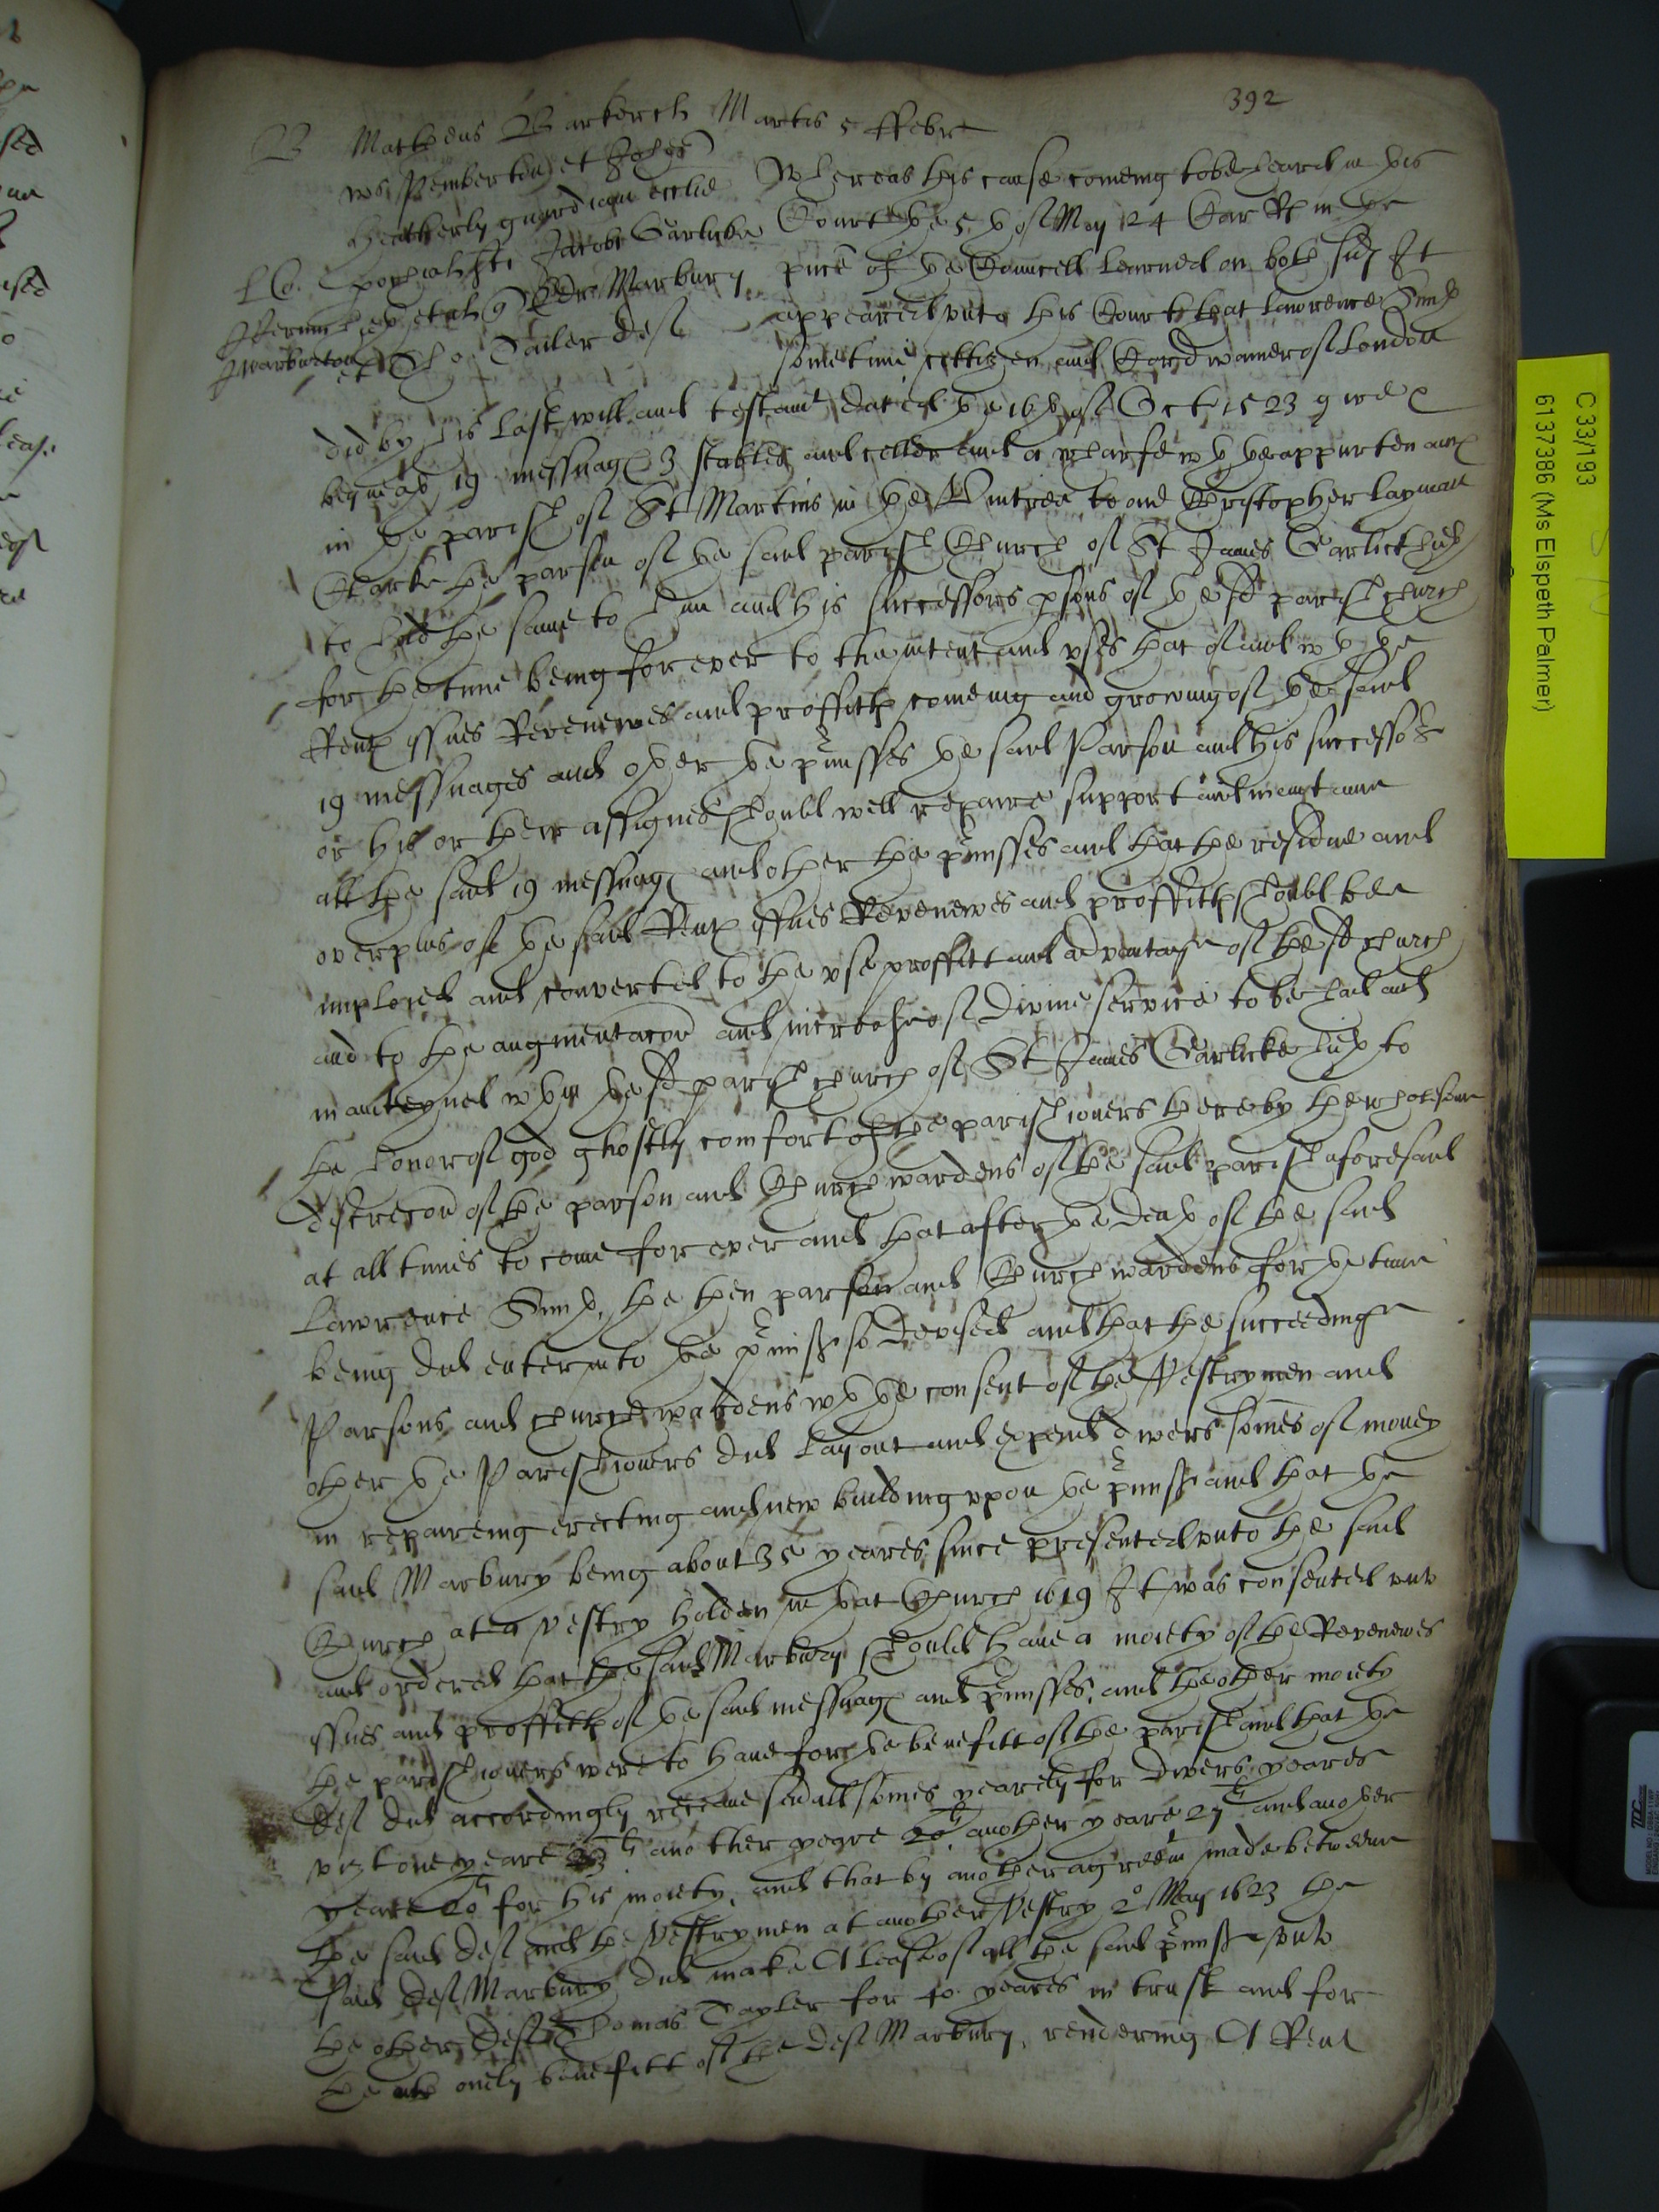 392
B Matheus Barker cl Martis 5 ffebr
Ws Pemberton et Johes
Heatherly guardiani ecclie
pochialis Sti Jacobi Garlicke
quer Marbury
Warburton et Tho: Tailer Def
Whereas this cause comeing to be heard in this
Court the 5th of May 24 Car R in the
pnce of the Councell Learned on both sides It
appeared unto this Court that Lawrence Smith
sometime cittizen and Cordwainer of London
did by his last will and testamt dated the 16th of Oct 1523 give &
bequeath 19 messuages 3 stables and celler and a wharfe wth the appurtenances
in the parish of St Martins in the Vintree to one Christopher Layman
Clarke the parson of the said parish Church of St James Garlickhith
to hold the same to him and his successors psons of the sd parish church
for the time being for ever to the intent and uses that of and wth the
Rents issues Revenewes and proffitts comeing and growing of the said
19 messuages and other the pmisses the said Parson and his successors
or his or their assignes should well repaire support and maintaine
all the said 19 messuages and other the pmisses and that the residue and
overplus of the said Rents issues Revenewes and proffitts should bee
imployed and converted to the use proffitt and advantage of the sd church
and to the augmentacon and increase of Divine service to be had and
mainteyned wthin the sd parish church of St James Garlicke hith to
the honor of god ghostly comfort of the parishioners thereby the wholesome
discrecon of the parson and Churchwardens of the said parish aforesaid
at all times to come for ever and that after the death of the said
Lawrence Smith, the then parson and Churchwardens for the time
being did enter into the pmisses so devised and that the succeeding
Parsons and churchwardens wth the consent of the Vestrymen and
other the Parishioners did lay out and expend divers somes of money
in repaireing erecting and new building upon the pmisses and that the
said Marbury being about 35 yeares since presented unto the said
Church at a vestry holden in that Church 1619 It was consented unto
and ordered that the said Marbury should have a moiety of the Revenewes
issues and proffitts of the said messuages and pmisses, and the other moiety
the parishioners were to have for the benefitt of the parish and that the
Deft did accordingly receave sevall somes yearely for divers yeares
vizt one yeare 23li another yeare 20li another yeare 27li and another
yeare 20li for his moiety, and that by another agreemt made betweene
the said Deft and the Vestrymen at another Vestry 2o May 1623 the
said Deft Marbury did make A lease of all the said pmisses unto
the other Deft Thomas Tayler for 40 yeares in trust and for
the only benefitt of the Deft Marbury, rendering A Rent
C 33/193
6137386 (Ms Elspeth Palmer)